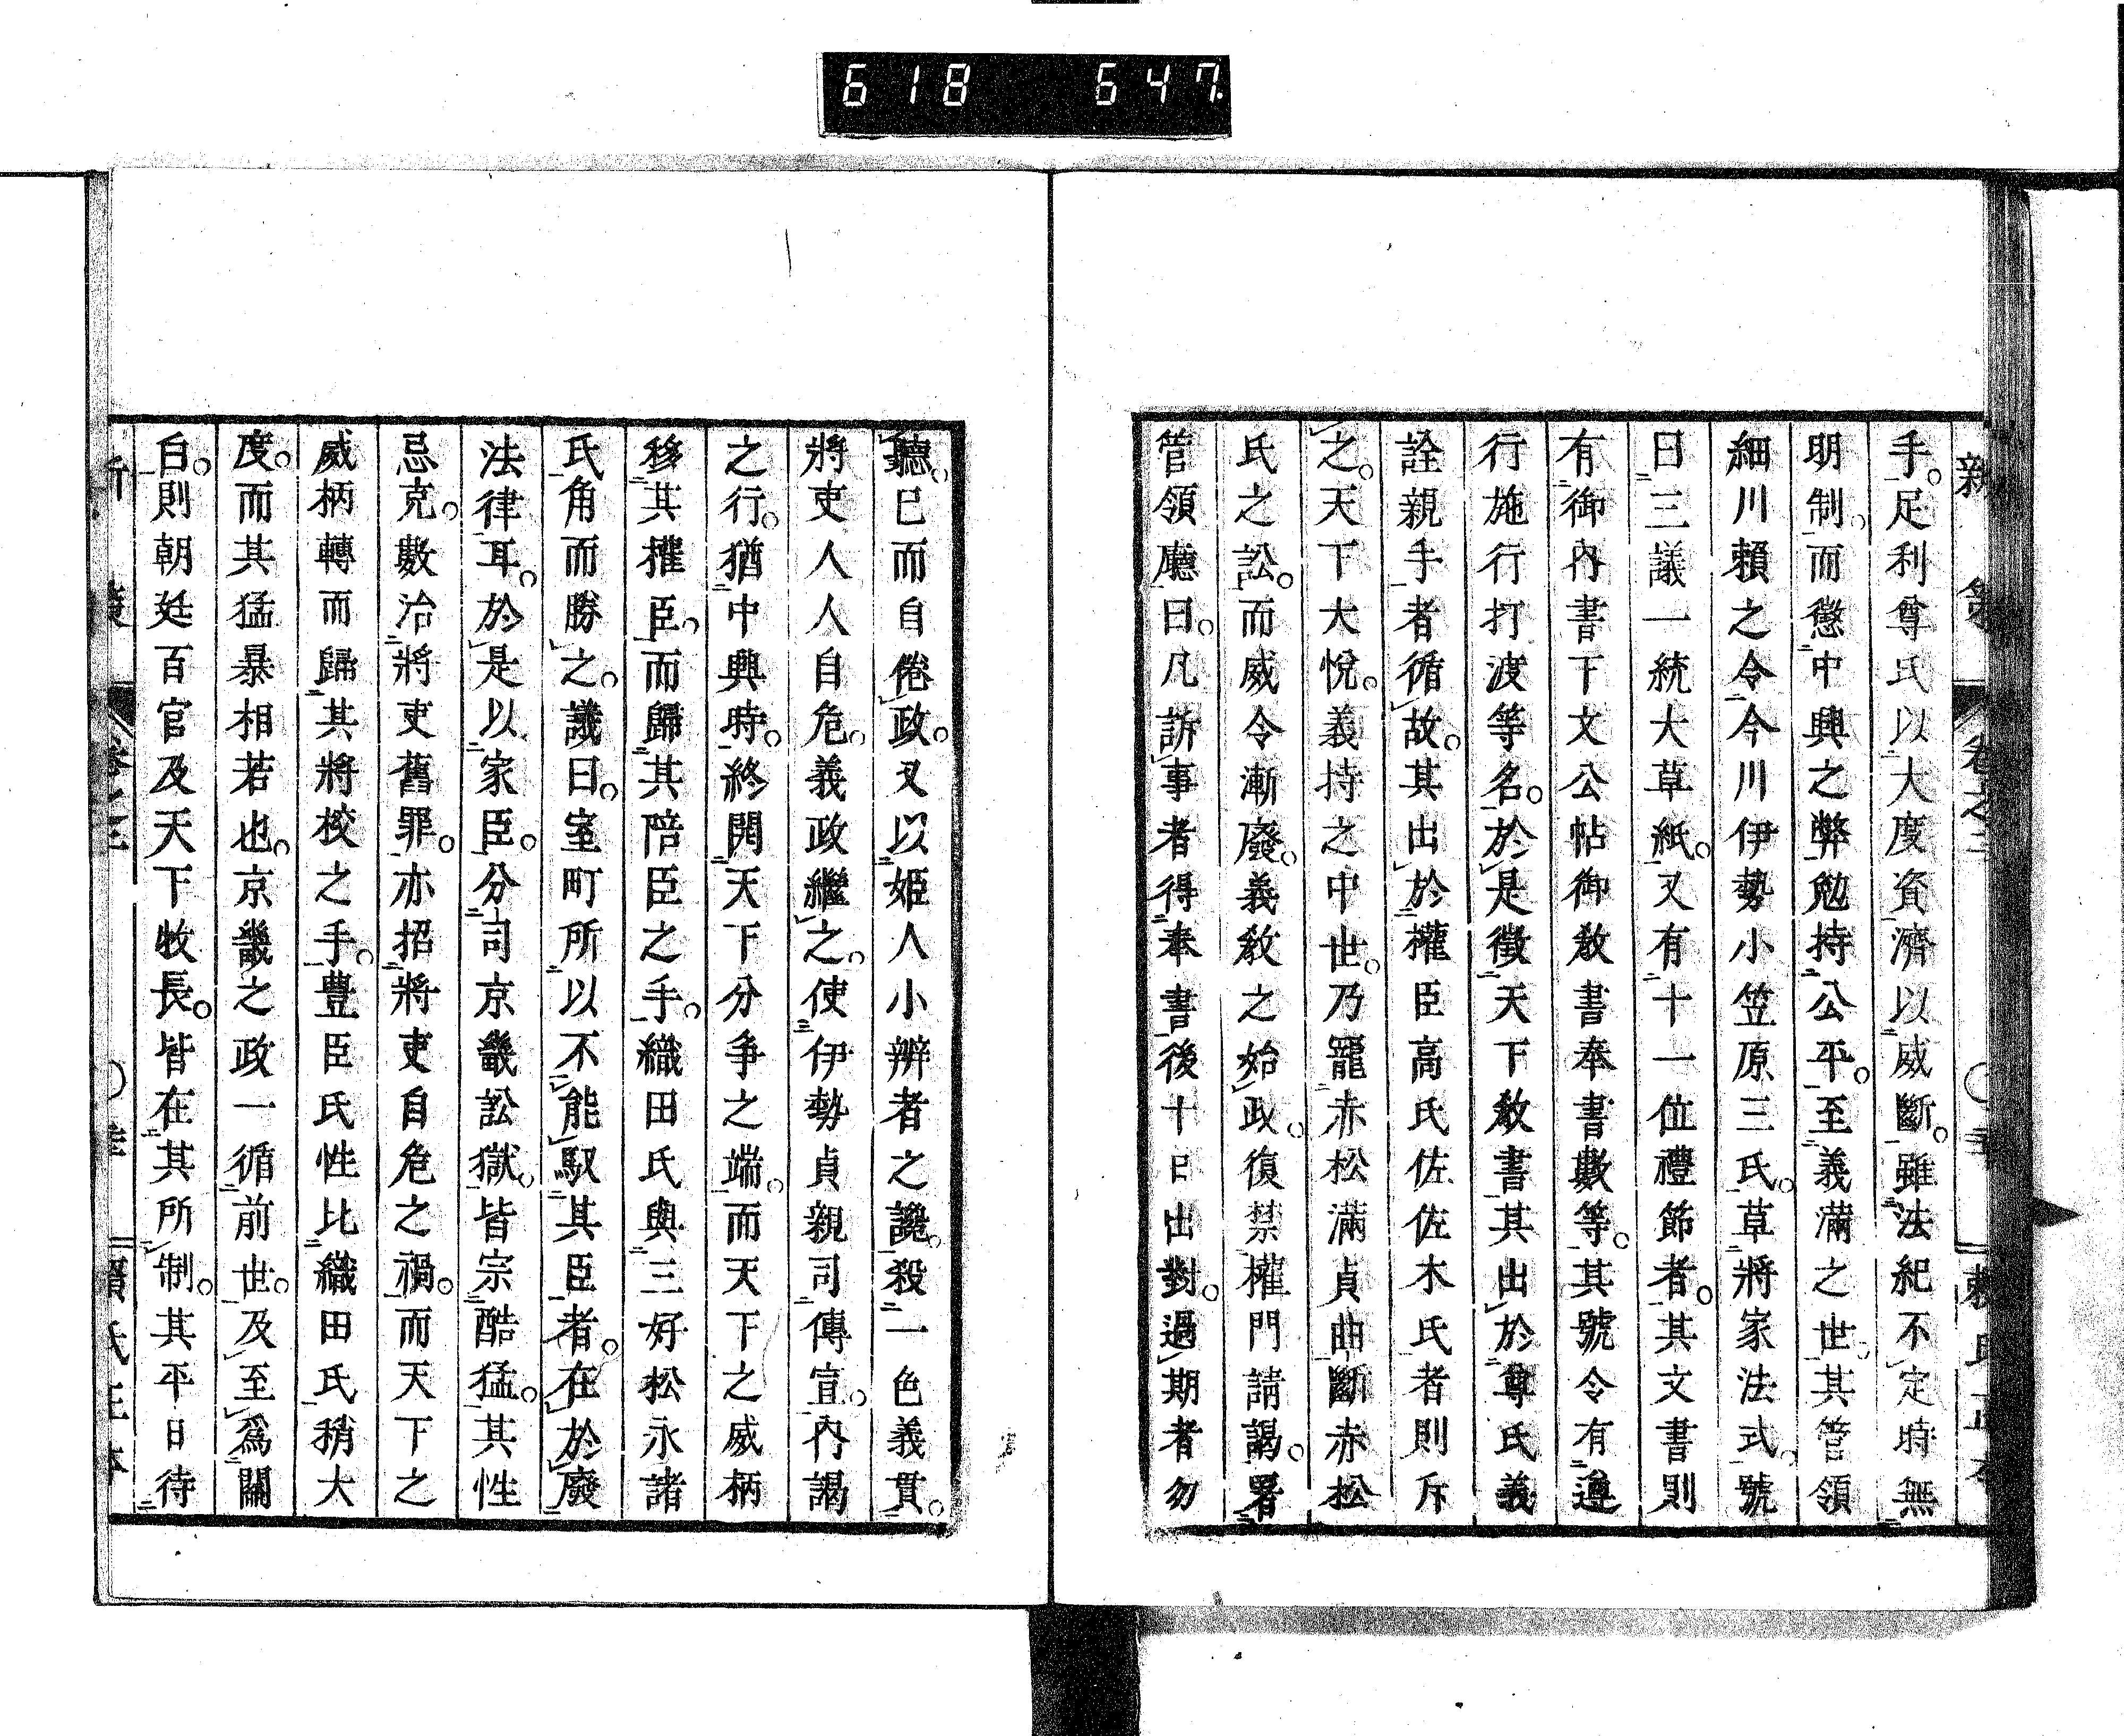 618 647.
手。足利尊氏以大度資濟以威斷。雖法紀不定時無
明制。而懲中興之弊勉持公平。至義滿之世。其管領
細川賴之令今川伊勢小笠原三氏。草將家法式。號
曰三議一統大草紙。又有十一位禮節者。其文書則
有御內書下文公帖御教書奉書數等。其號令有遵
行施行打渡等名。於是徵天下教書其出於尊氏義
詮親手者循故。其出於權臣高氏佐佐木氏者則斥
之。天下大悅。義持之中世。乃寵赤松滿貞曲斷赤松
氏之訟。而威令漸廢。義教之始政。復禁權門請謁。署
管領廳曰。凡訴事者得奉書後十日出對。過期者勿
聽。已而自倦政。又以姬人小辨者之讒。殺一色義貫。
將吏人人自危。義政繼之。使伊勢貞親司傳宣。內謁
之行。猶中興時。終開天下分爭之端。而天下之威柄
移其權臣。而歸其陪臣之手。織田氏與三好松永諸
氏角而勝之。議曰。室町所以不能馭其臣者。在於廢
法律耳。於是以家臣。分司京畿訟獄。皆宗酷猛。其性
忌克。數治將吏舊罪。亦招將吏自危之禍。而天下之
威柄轉而歸其將校之手。豐臣氏性比織田氏稍大
度。而其猛暴相若也。京畿之政一循前世。及至爲關
白。則朝廷百官及天下牧長。皆在其所制。其平日待